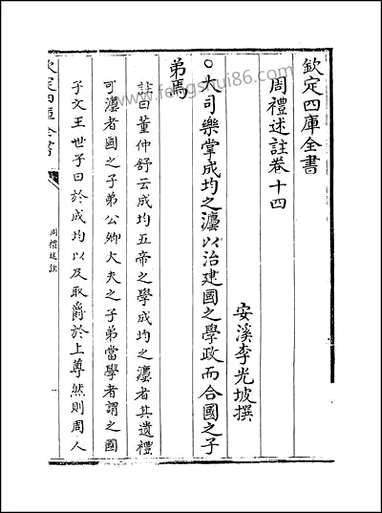 欽定四庫全書
周禮述註卷十四
安溪李光坡撰
○大司樂掌成均之灋以治建國之學政而合國之子
弟焉
註曰董仲舒云成均五帝之學成均之灋者其遺禮
可灋者國之子弟公卿大夫之子弟當學者謂之國
子文王世子曰於成均以及取爵於上尊然則周人
欽定四庫全書
周禮述註
一
www.fengshui86.com